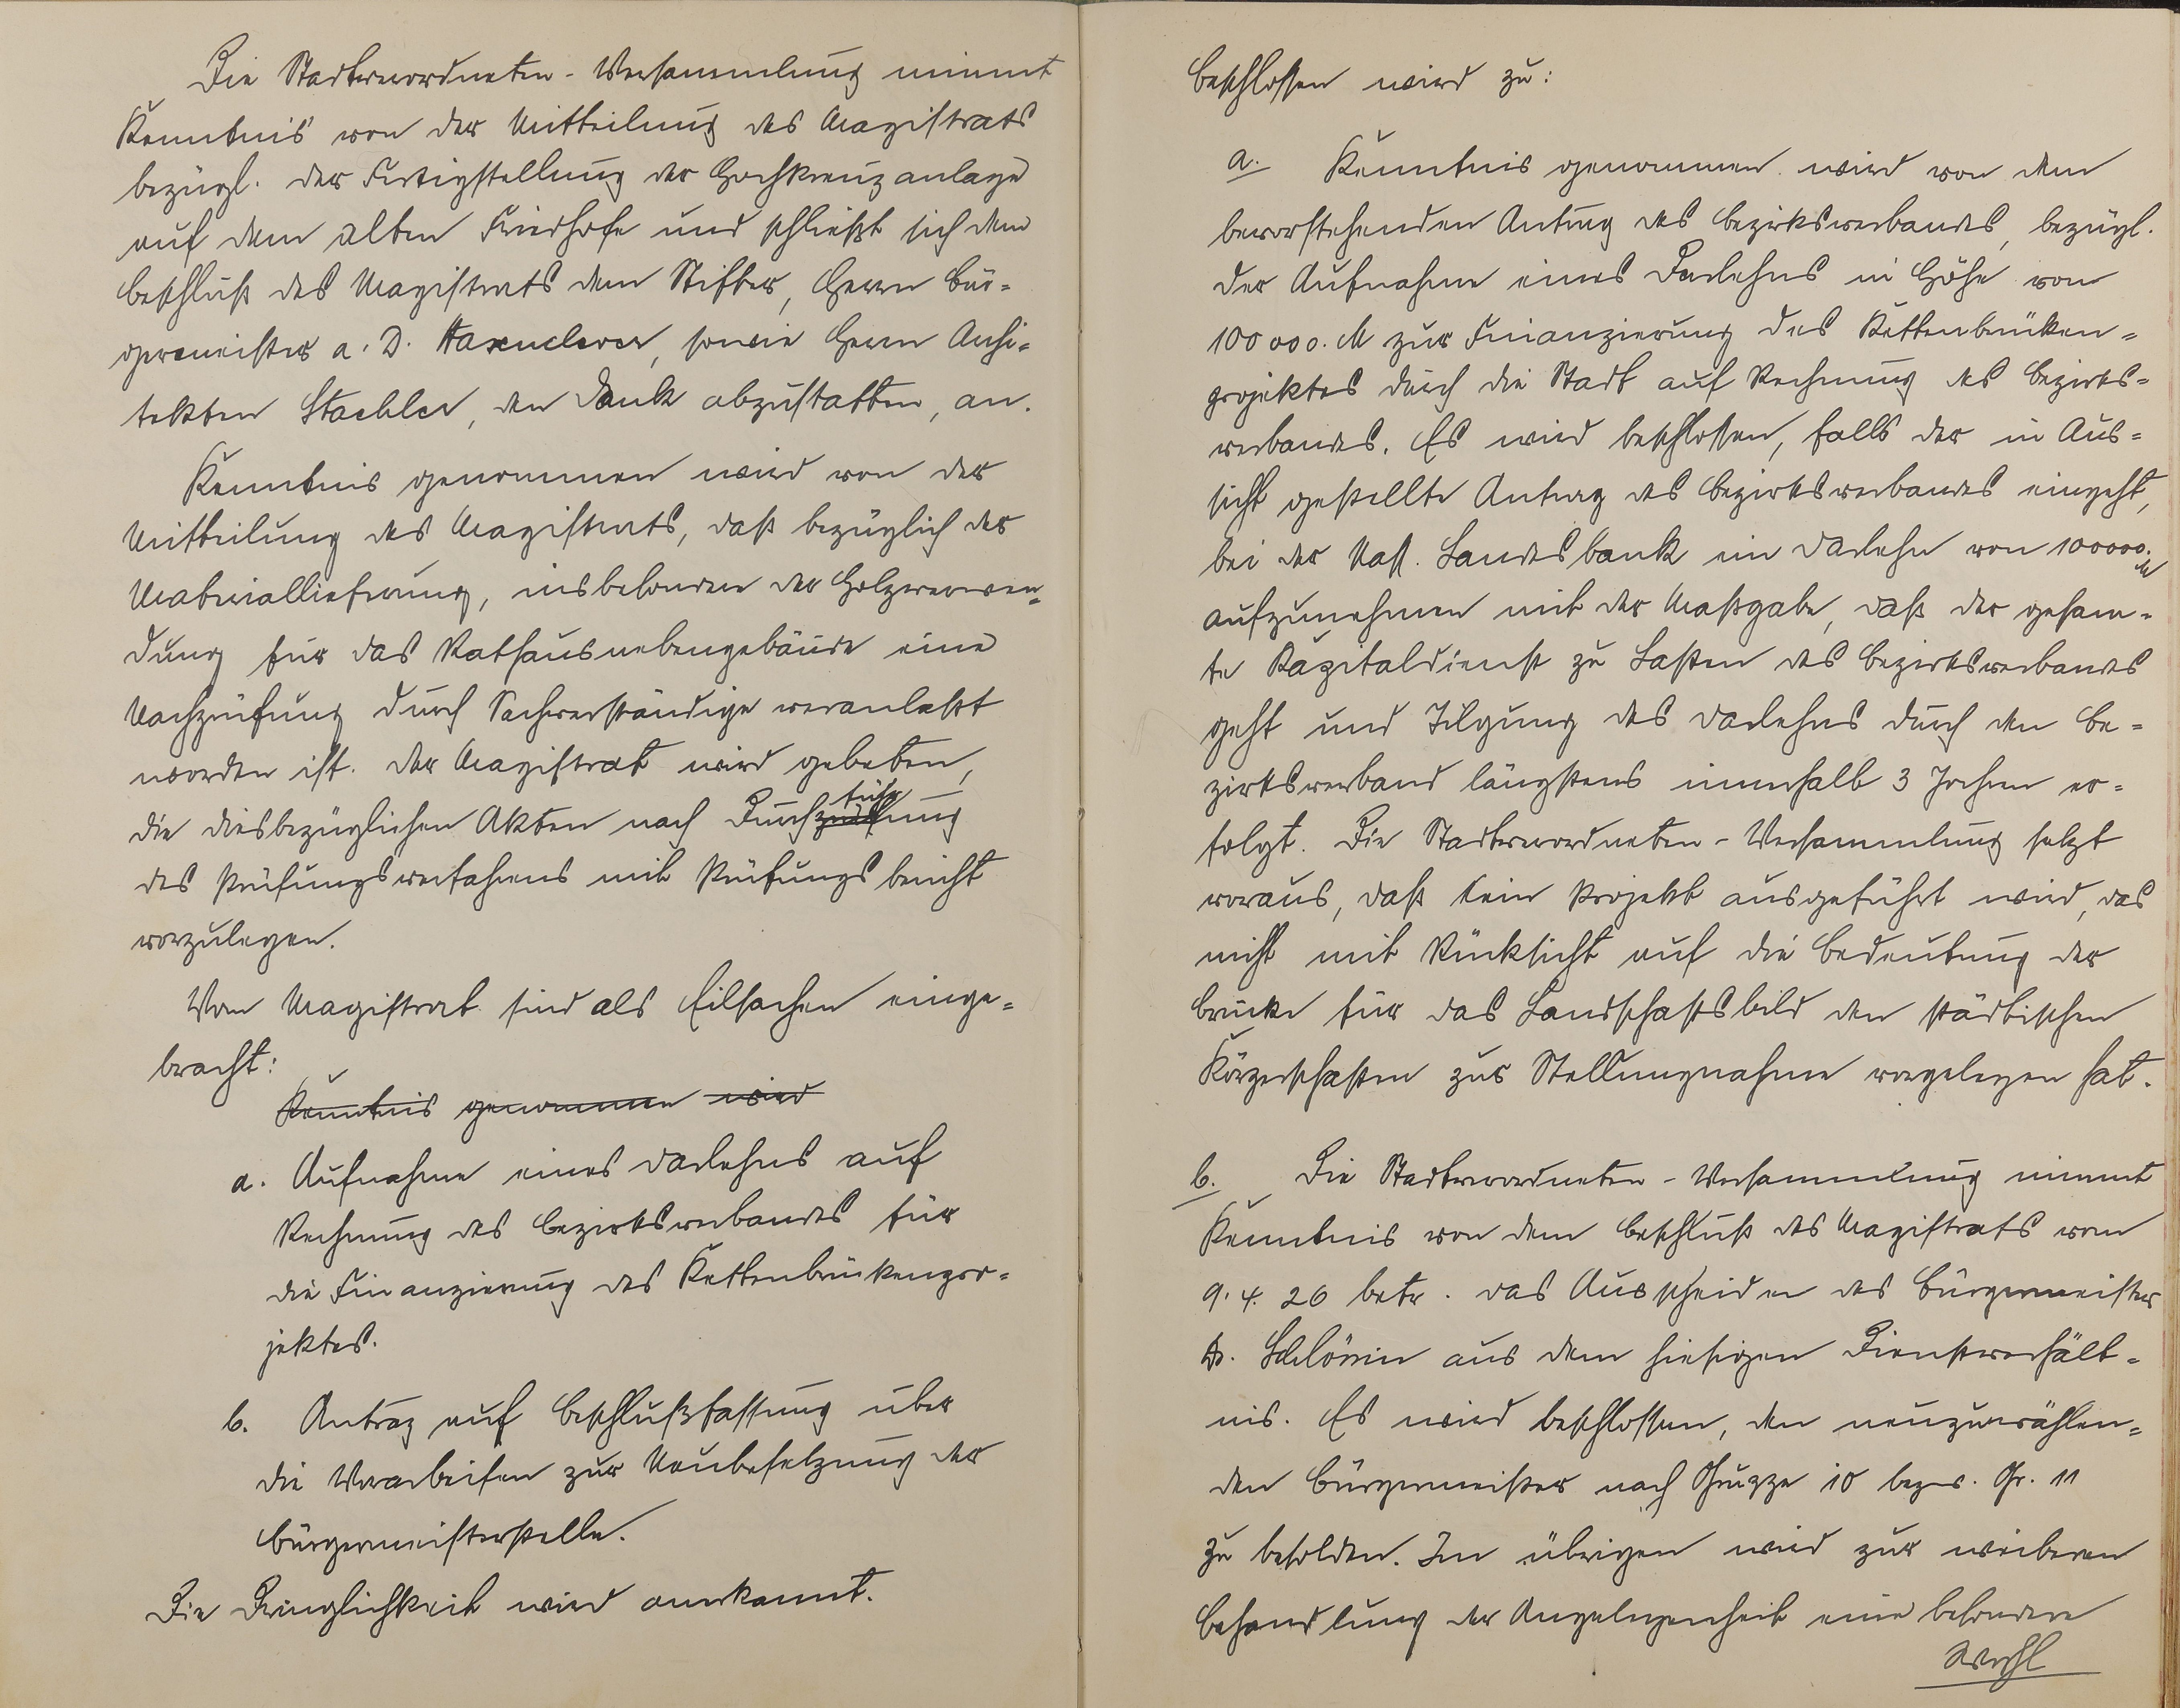 Die Stadtverordneten-Versammlung nimmt
Kenntnis von der Mitteilung des Magistrats
bezügl. der Fertigstellung der Hochkreuzanlage
auf dem alten Friedhofe und schließt sich dem
Beschluß des Magistrats dem Stifter, Herrn Bür-
germeister a. D. Hasenclever, sowie Herrn Archi-
tekten Staehler, den Dank abzustatten, an.
Kenntnis genommen wird von der
Mitteilung des Magistrats, daß bezüglich der
Materiallieferung, insbesondere der Holzverwen-
dung für das Rathausnebengebäude eine
Nachprüfung durch Sachverständige veranlaßt
worden ist. Der Magistrat wird gebeten,
die diesbezüglichen Akten nach Durchführung
des Prüfungsverfahrens mit Prüfungsbericht
vorzulegen.
Vom Magistrat sind als Eilsachen einge-
bracht:
Kenntnis genommen wird
a. Aufnahme eines Darlehns auf
Rechnung des Bezirksverbandes für
die Finanzierung des Kettenbrückenpro-
jektes.
b. Antrag auf Beschlußfassung über
die Vorarbeiten zur Neubesetzung der
Bürgermeisterstelle.
Die Dringlichkeit wird anerkannt.
Beschlossen wird zu:
a. Kenntnis genommen wird von dem
bevorstehenden Antrag des Bezirksverbandes, bezügl.
der Aufnahme eines Darlehns in Höhe von
100 000. M zur Finanzierung des Kettenbrücken-
projektes durch die Stadt auf Rechnung des Bezirks-
verbandes. Es wird beschlossen, falls der in Aus-
sicht gestellte Antrag des Bezirksverbandes eingeht,
bei der Nass. Landesbank ein Darlehn von 100000. M
aufzunehmen mit der Maßgabe, daß der gesam-
te Kapitaldienst zu Lasten des Bezirksverbandes
geht und Tilgung des Darlehns durch den Be-
zirksverband längstens innerhalb 3 Jahren er-
folgt. Die Stadtverordneten-Versammlung setzt
voraus, daß kein Projekt ausgeführt wird, das
nicht mit Rücksicht auf die Bedeutung der
Brücke für das Landschaftsbild den städtischen
Körperschaften zur Stellungnahme vorgelegen hat.
b. Die Stadtverordneten-Versammlung nimmt
Kenntnis von dem Beschluß des Magistrats vom
9. 4. 26 betr. das Ausscheiden des Bürgermeister
Dr. Schlösin aus dem hiesigen Dienstverhält-
nis. Es wird beschlossen, den neuzuwählen-
den Bürgermeister nach Gruppe 10 bezw. Gr. 11
zu besolden. Im übrigen wird zur weiteren
Behandlung der Angelegenheit eine besondere
Wahl